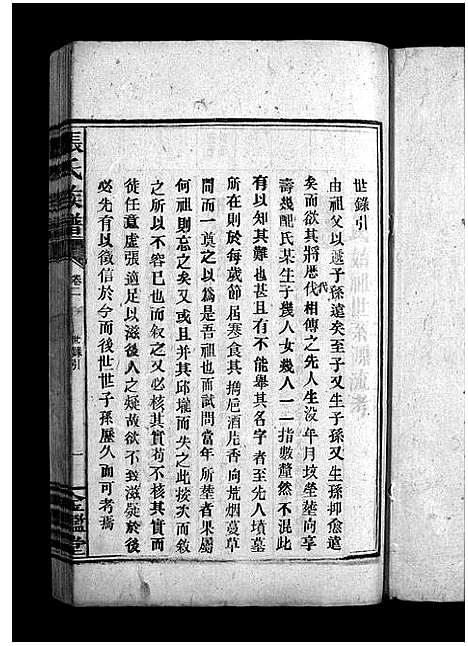 世錄引
由祖父以遞子孫遠矣至子又生子孫又生孫抑愈遠
矣而欲其將歷代相傳之先人生沒年月坟塋塟向享
壽幾配氏某生子幾人女幾人一二指數釐然不混此
有以知其難也甚且有不能舉其名字者至先人墳墓
所在則於每歲節屆寒食其携巵酒片香向荒烟蔓草
間而一奠之以為是吾祖也而試問當年所塟者果屬
何祖則忘之矣又或且并其邱壠而失之此挨次而敘
之所以不容已也而叙之又必核其實苟不核其實而
徒任意虛張適足以滋後人之疑故欲不致滋疑於後
必先有以徵信於今而後世世子孫歷久而可考焉
張氏族譜
卷一
世錄引
一
金鑑堂